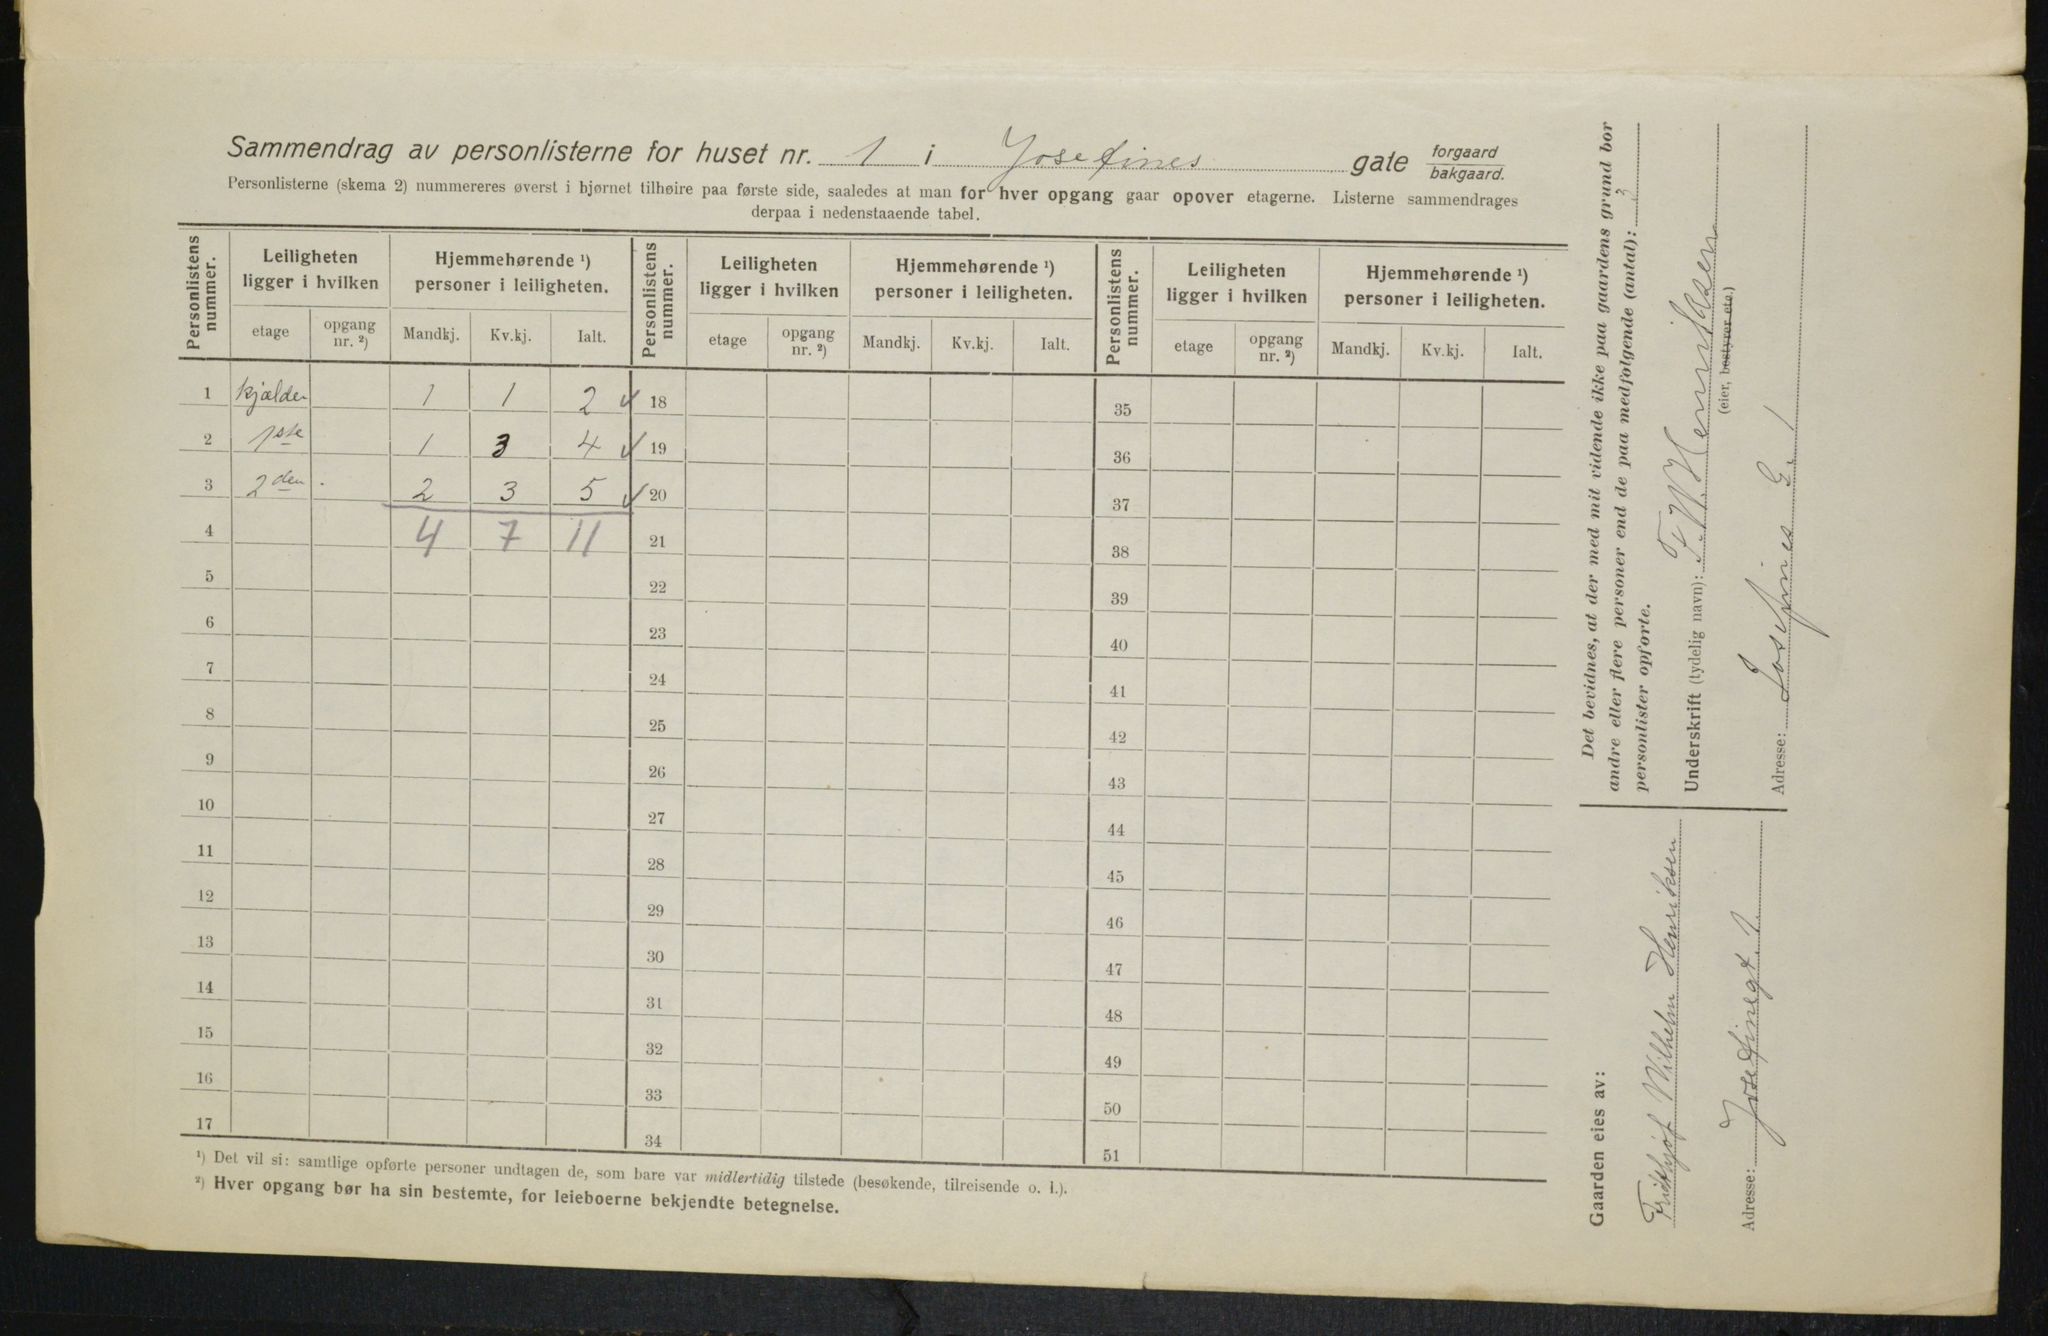 Sammendrag av personlisterne for huset nr. 1 i Josefines gate forgaard bakgaard.
Personlisterne (skema 2) nummereres øverst i hjørnet tilhøire paa første side, saaledes at man for hver opgang gaar opover etagerne. Listerne sammendrages
derpaa i nedenstaaende tabel.
Personlistens nummer. Leiligheten ligger i hvilken Hjemmehørende ¹) personer i leiligheten. Personlistens nummer. Leiligheten ligger i hvilken Hjemmehørende ¹) personer i leiligheten. Personlistens nummer. Leiligheten ligger i hvilken Hjemmehørende ¹) personer i leiligheten.
etage opgang nr. ²) Mandkj. Kv.kj. Ialt. etage opgang nr. ²) Mandkj. Kv.kj. Ialt. etage opgang nr. ²) Mandkj. Kv.kj. Ialt.
1 kjælder 1 1 2 18 35
2 1ste 1 3 4 19 36
3 2den 2 3 5 20 37
4 4 7 11 21 38
5 22 39
6 23 40
7 24 41
8 25 42
9 26 43
10 27 44
11 28 45
12 29 46
13 30 47
14 31 48
15 32 49
16 33 50
17 34 51
¹) Det vil si: samtlige opførte personer undtagen de, som bare var midlertidig tilstede (besøkende, tilreisende o. l.).
²) Hver opgang bør ha sin bestemte, for leieboerne bekjendte betegnelse.
Det bevidnes, at der med mit vidende ikke paa gaardens grund bor
andre eller flere personer end de paa medfølgende (antal): 3
personlister opførte.
Underskrift (tydelig navn): F. W. Henriksen
(eier, bestyrer etc.)
Adresse: Josefines G. 1
Gaarden eies av:
Fridthjof Wilhelm Henriksen
Adresse: Josefinegt. 1.